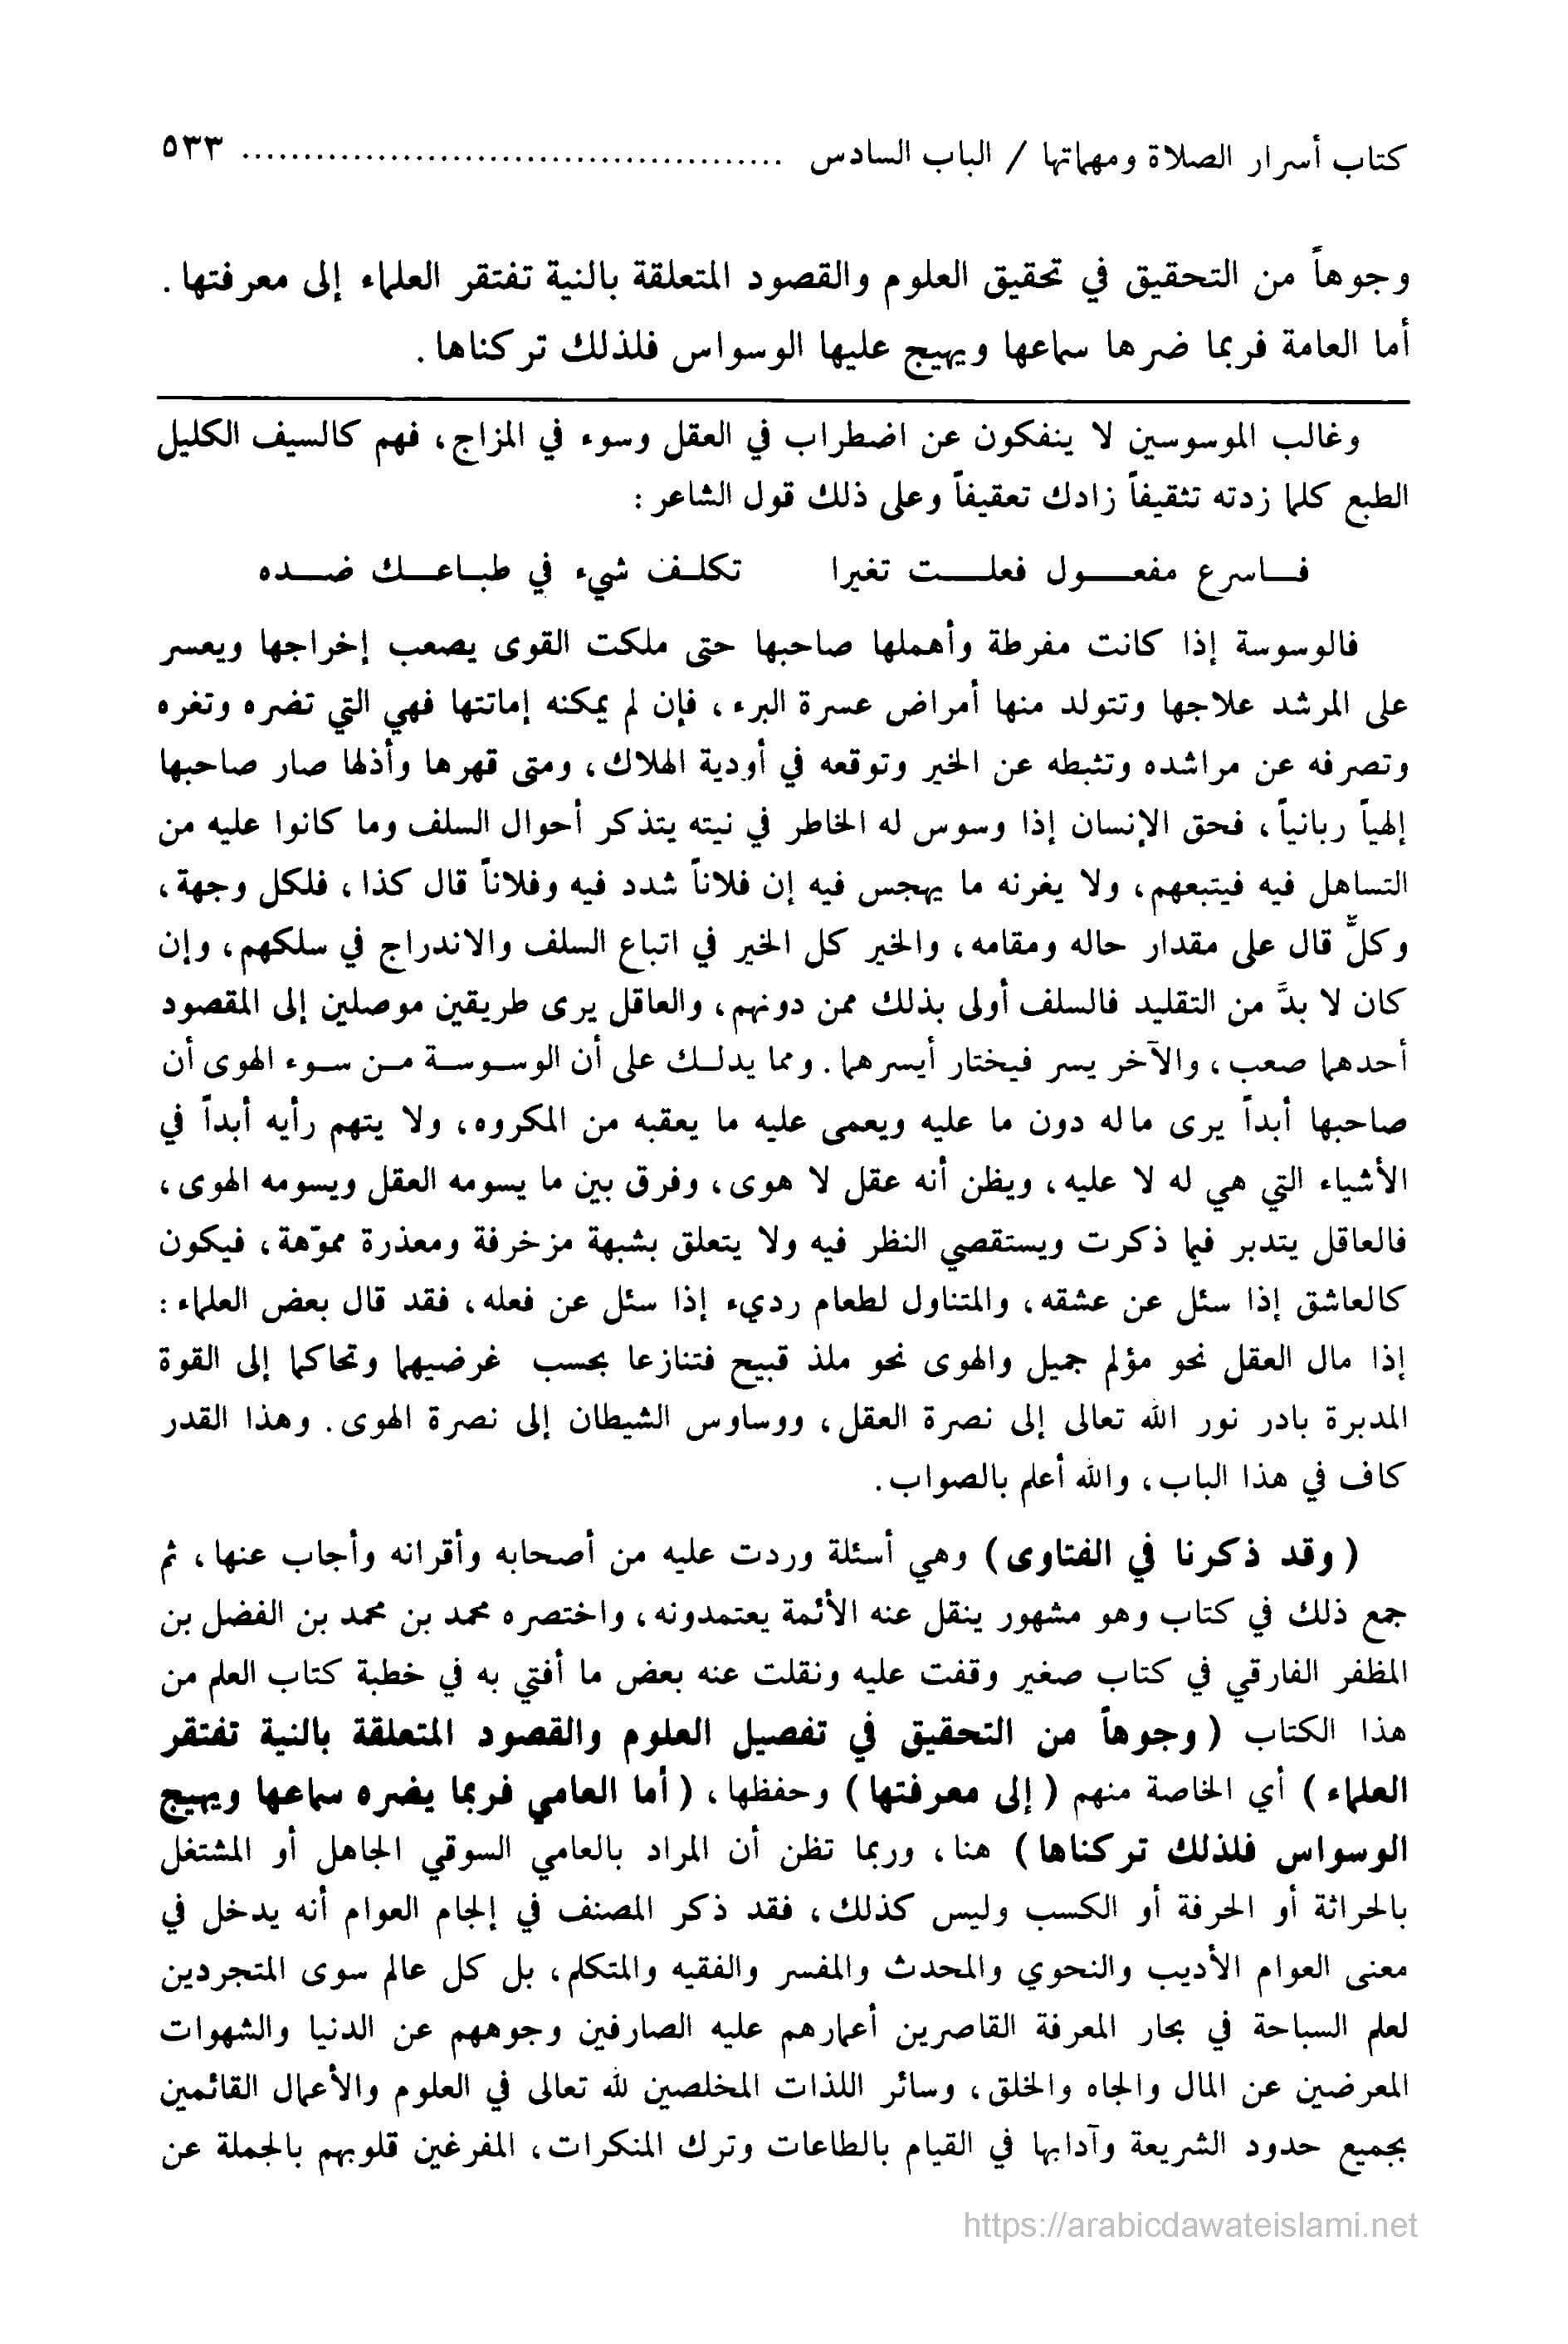 كتاب أسرار الصلاة ومهماتها / الباب السادس ............................................ ٥٣٣
وجوهاً من التحقيق في تحقيق العلوم والقصود المتعلقة بالنية تفتقر العلماء إلى معرفتها .
أما العامة فربما ضرها سماعها ويهيج عليها الوسواس فلذلك تركناها .
وغالب الموسوسين لا ينفكون عن اضطراب في العقل وسوء في المزاج ، فهم كالسيف الكليل
الطبع كلما زدته تثقيفاً زادك تعقيفاً وعلى ذلك قول الشاعر :
فـاسرع مفعـول فعلـت تغيرا تكلـف شيء في طبـاعـك ضـده
فالوسوسة إذا كانت مفرطة وأهملها صاحبها حتى ملكت القوى يصعب إخراجها ويعسر
على المرشد علاجها وتتولد منها أمراض عسرة البرء ، فإن لم يمكنه إماتتها فهي التي تضره وتغره
وتصرفه عن مراشده وتثبطه عن الخير وتوقعه في أودية الهلاك ، ومتى قهرها وأذلها صار صاحبها
إلهياً ربانياً ، فحق الإنسان إذا وسوس له الخاطر في نيته يتذكر أحوال السلف وما كانوا عليه من
التساهل فيه فيتبعهم ، ولا يغرنه ما يهجس فيه إن فلاناً شدد فيه وفلاناً قال كذا ، فلكل وجهة ،
وكلٌّ قال على مقدار حاله ومقامه ، والخير كل الخير في اتباع السلف والاندراج في سلكهم ، وإن
كان لا بدَّ من التقليد فالسلف أولى بذلك ممن دونهم ، والعاقل يرى طريقين موصلين إلى المقصود
أحدهما صعب ، والآخر يسر فيختار أيسرهما . ومما يدلـك على أن الوسـوسـة مـن سـوء الهوى أن
صاحبها أبداً يرى ماله دون ما عليه ويعمى عليه ما يعقبه من المكروه ، ولا يتهم رأيه أبداً في
الأشياء التي هي له لا عليه ، ويظن أنه عقل لا هوى ، وفرق بين ما يسومه العقل ويسومه الهوى ،
فالعاقل يتدبر فيما ذكرت ويستقصي النظر فيه ولا يتعلق بشبهة مزخرفة ومعذرة مموّهة ، فيكون
كالعاشق إذا سئل عن عشقه ، والمتناول لطعام رديء إذا سئل عن فعله ، فقد قال بعض العلماء :
إذا مال العقل نحو مؤلم جميل والهوى نحو ملذ قبيح فتنازعا بحسب غرضيهما وتحاكما إلى القوة
المدبرة بادر نور الله تعالى إلى نصرة العقل ، ووساوس الشيطان إلى نصرة الهوى . وهذا القدر
كاف في هذا الباب ، والله أعلم بالصواب .
( وقد ذكرنا في الفتاوى ) وهي أسئلة وردت عليه من أصحابه وأقرانه وأجاب عنها ، ثم
جمع ذلك في كتاب وهو مشهور ينقل عنه الأئمة يعتمدونه ، واختصره محمد بن محمد بن الفضل بن
المظفر الفارقي في كتاب صغير وقفت عليه ونقلت عنه بعض ما أفتي به في خطبة كتاب العلم من
هذا الكتاب ( وجوهاً من التحقيق في تفصيل العلوم والقصود المتعلقة بالنية تفتقر
العلماء ) أي الخاصة منهم ( إلى معرفتها ) وحفظها ، ( أما العامي فربما يضره سماعها ويهيج
الوسواس فلذلك تركناها ) هنا ، وربما تظن أن المراد بالعامي السوقي الجاهل أو المشتغل
بالحراثة أو الحرفة أو الكسب وليس كذلك ، فقد ذكر المصنف في إلجام العوام أنه يدخل في
معنى العوام الأديب والنحوي والمحدث والمفسر والفقيه والمتكلم ، بل كل عالم سوى المتجردين
لعلم السباحة في بحار المعرفة القاصرين أعمارهم عليه الصارفين وجوههم عن الدنيا والشهوات
المعرضين عن المال والجاه والخلق ، وسائر اللذات المخلصين لله تعالى في العلوم والأعمال القائمين
بجميع حدود الشريعة وآدابها في القيام بالطاعات وترك المنكرات ، المفرغين قلوبهم بالجملة عن
https://arabicdawateislami.net